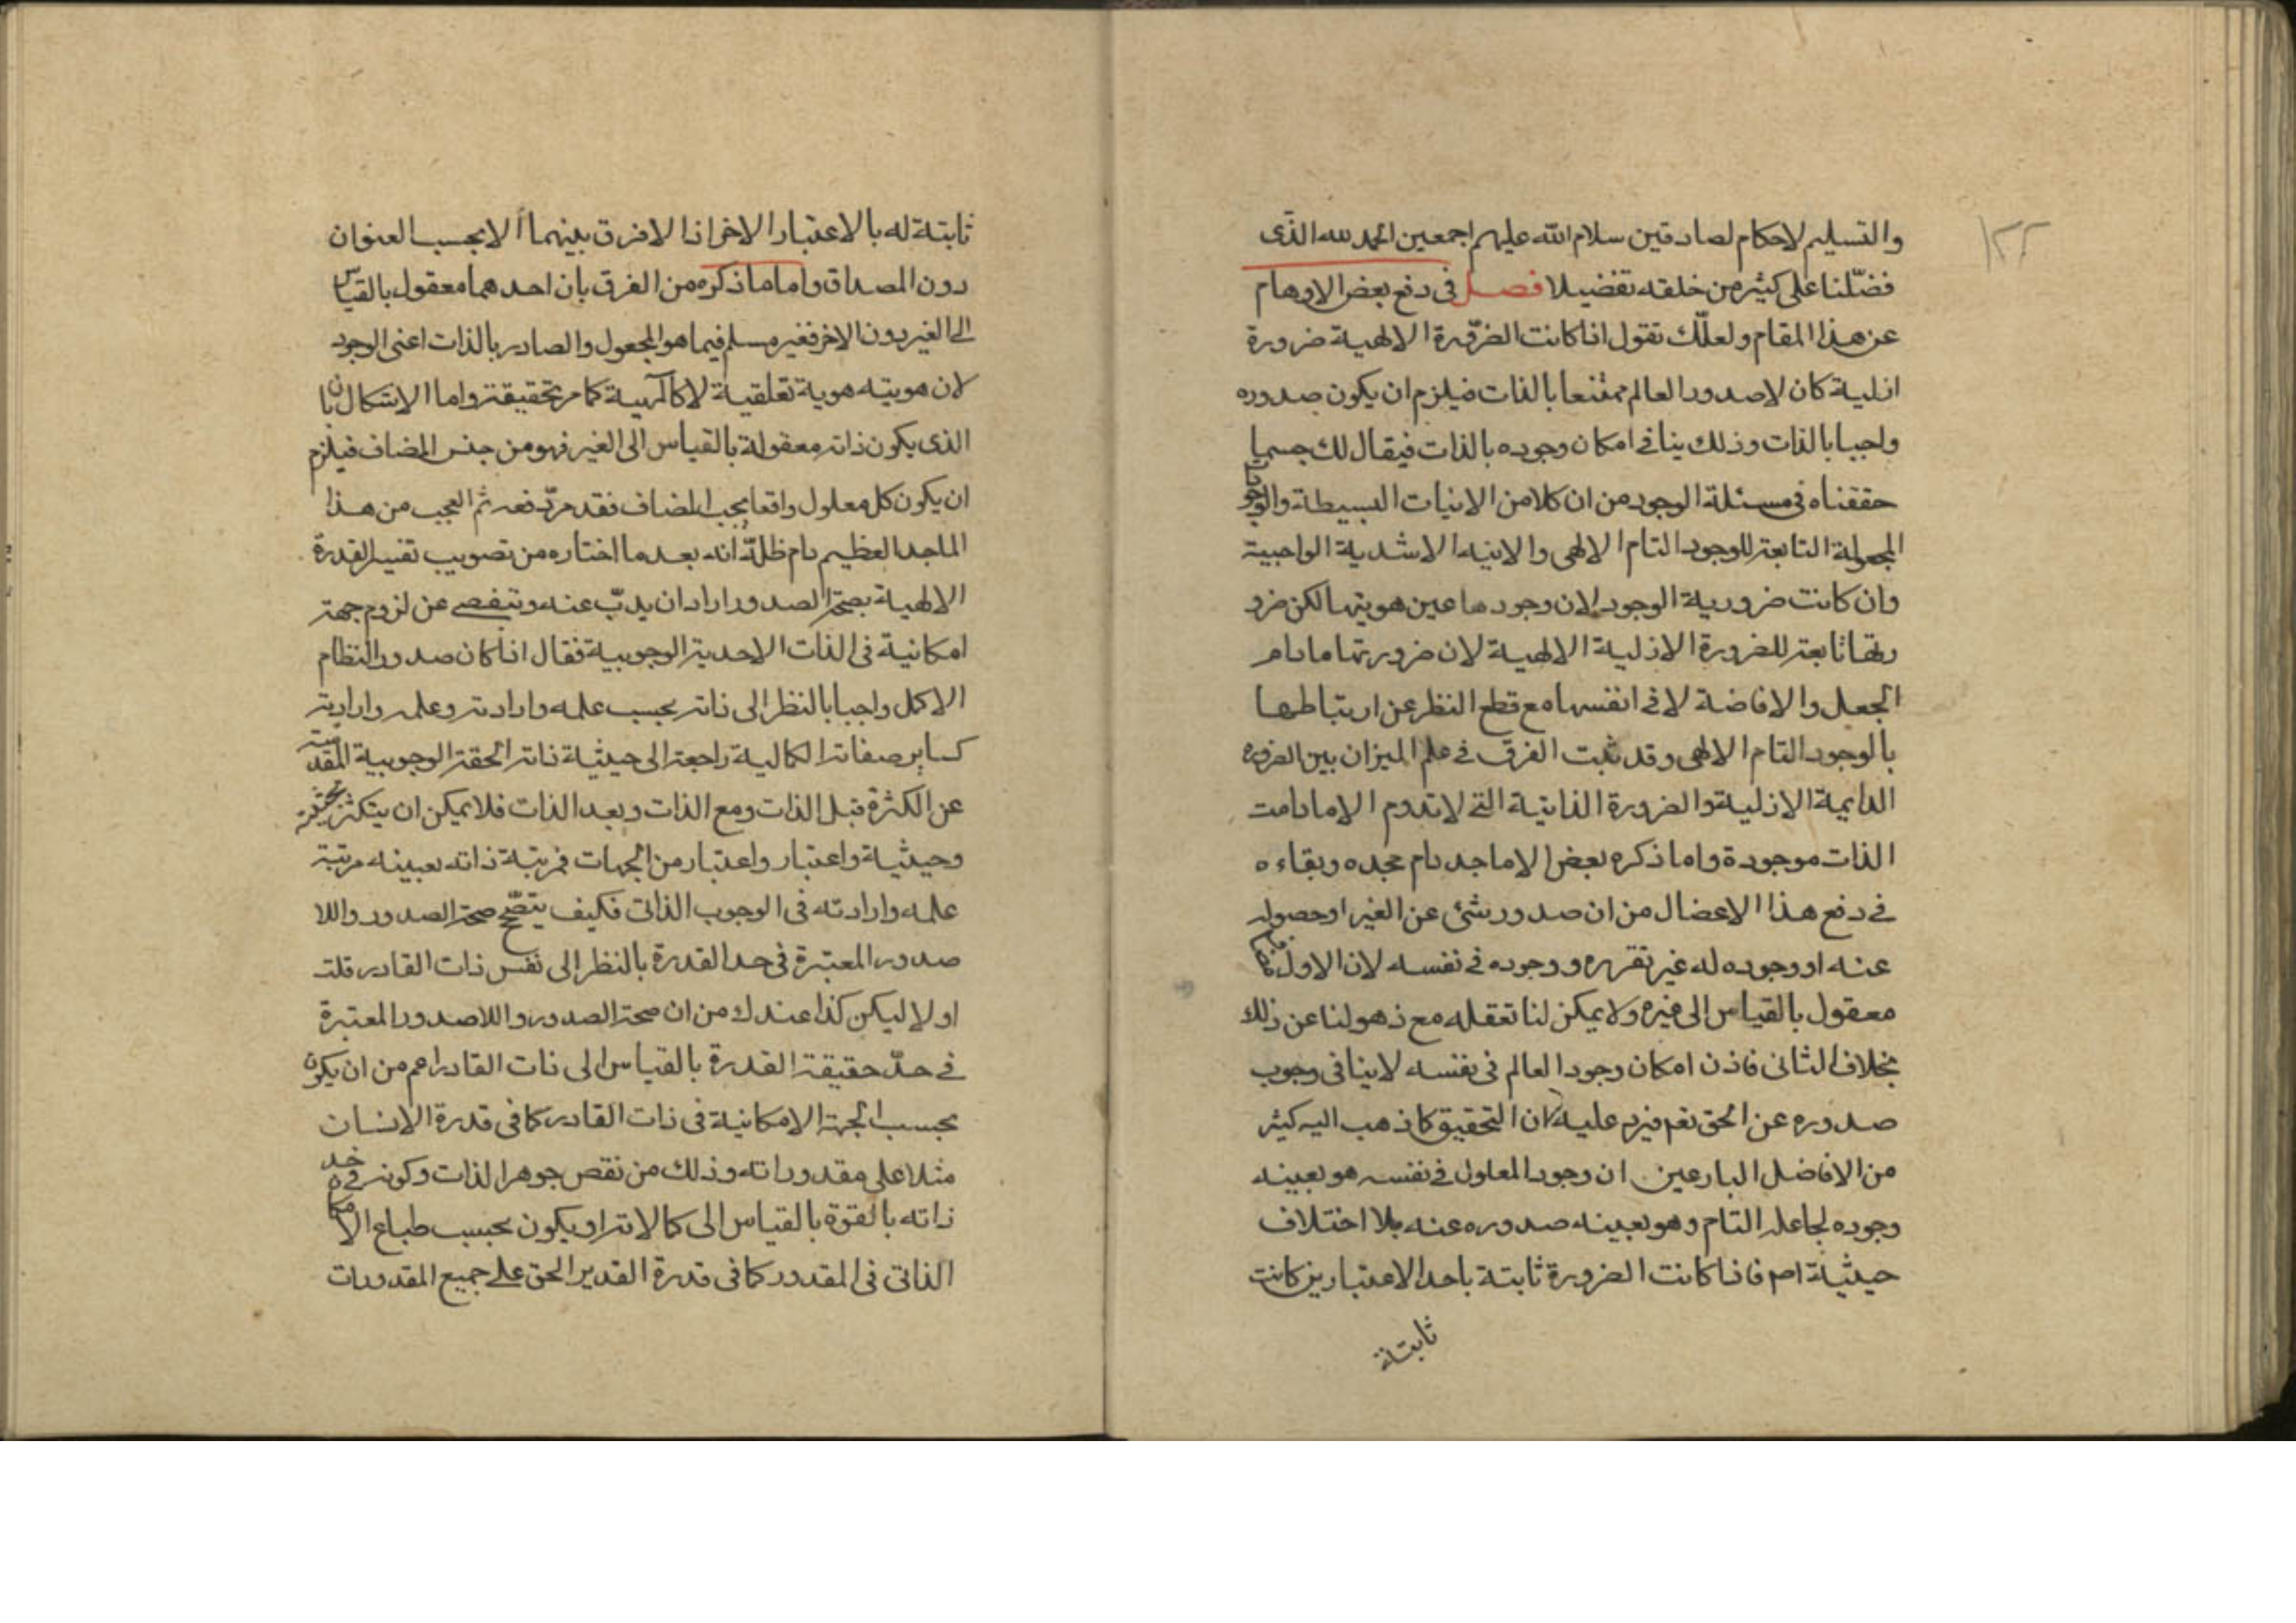 ١٢٢
والتسليم لاحكام لصادقين سلام الله عليهم اجمعين الحمد لله الذى
فضّلنا على كثير من خلقه تفضيلا فصل فى دفع بعض الاوهام
عن هذا المقام ولعلّك تقول اذا كانت الضرورة الالهية ضرورة
ازلية كان لاصدور العالم ممتنعا بالذات فيلزم ان يكون صدوره
واجبا بالذات وذلك ينافى امكان وجوده بالذات فيقال لك حسبما
حققناه فى مسئلة الوجود من ان كلا من الانيات البسيطة والوجودات
المجعولة التابعة للوجود التام الالهى والانيه الاشدية الواجبية
وان كانت ضرورية الوجود لان وجودها عين هويتها لكن ضرو
رتها تابعة للضرورة الازلية الالهية لان ضرورتها مادام
الجعل والافاضة لا فى انفسها مع قطع النظر عن ارتباطها
بالوجود التام الالهى وقد ثبت الفرق فى علم الميزان بين الضرورة
الدايمة الازلية والضرورة الذاتية التى لا تدوم الا مادامت
الذات موجودة واما ذكره بعض الاماجد دام مجده وبقاءه
فى دفع هذا الاعضال من ان صدور شئ عن الغير او حصوله
عنه او وجوده له غير تقرره ووجوده فى نفسه لان الاول
معقول بالقياس الى غيره ولا يمكن لنا تعقله مع ذهولنا عن ذلك
بخلاف الثانى فاذن امكان وجود العالم فى نفسه لا ينافى وجوب
صدوره عن الحق نعم فيرد عليه ان التحقيق كما ذهب اليه كثير
من الافاضل البارعين ان وجود المعلول فى نفسه هو بعينه
وجوده لجاعله التام وهو بعينه صدوره عنه بلا اختلاف
حيثية اصم فاذا كانت الضرورة ثابتة باحد الاعتبارين كانت
ثابتة
ثابتة له بالاعتبار الاخر اذ لا فرق بينهما الا بحسب العنوان
دون المصداق واما ما ذكره من الفرق بان احدهما معقول بالقياس
الى الغير دون الاخر فغير مسلم فيما هو المجعول والصادر بالذات اعنى الوجود
لان هويته هوية تعلقية لا كالمهية كما مر تحقيقه واما الاشكال بان
الذى يكون ذاته معقولة بالقياس الى الغير فهو من جنس المضاف فيلزم
ان يكون كل معلول واقعا بحسب المضاف فقد مرّ دفعه ثم العجب من هذا
الماجد العظيم دام ظلّه انه بعد ما اختاره من تصويب تفسير القدرة
الالهية بصحة الصدور اراد ان يذبّ عنه ويتفصى عن لزوم جهة
امكانية فى الذات الاحدية الوجوبية فقال اذا كان صدور النظام
الاكمل واجبا بالنظر الى ذاته بحسب علمه وارادته وعلمه وارادته
كساير صفاته الكمالية راجعة الى حيثية ذاته الحقة الوجوبية المقدسة
عن الكثرة قبل الذات ومع الذات وبعد الذات فلا يمكن ان يتكثر بحيثية
وحيثية واعتبار واعتبار من الجهات فمرتبة ذاته بعينه مرتبة
علمه وارادته فى الوجوب الذاتى فكيف يتصحّح صحة الصدور واللا
صدور المعتبرة فى حد القدرة بالنظر الى نفس ذات القادر قلت
اولا ليكن كذا عندك من ان صحة الصدور واللاصدور المعتبرة
فى حدّ حقيقة القدرة بالقياس الى ذات القادر اعم من ان يكون
بحسب الجهة الامكانية فى ذات القادر كما فى قدرة الانسان
مثلا على مقدوراته وذلك من نقص جوهر الذات وكونه فى حد
ذاته بالقوة بالقياس الى كمالاته او يكون بحسب طباع الامكان
الذاتى فى المقدور كما فى قدرة القدير الحق على جميع المقدورات